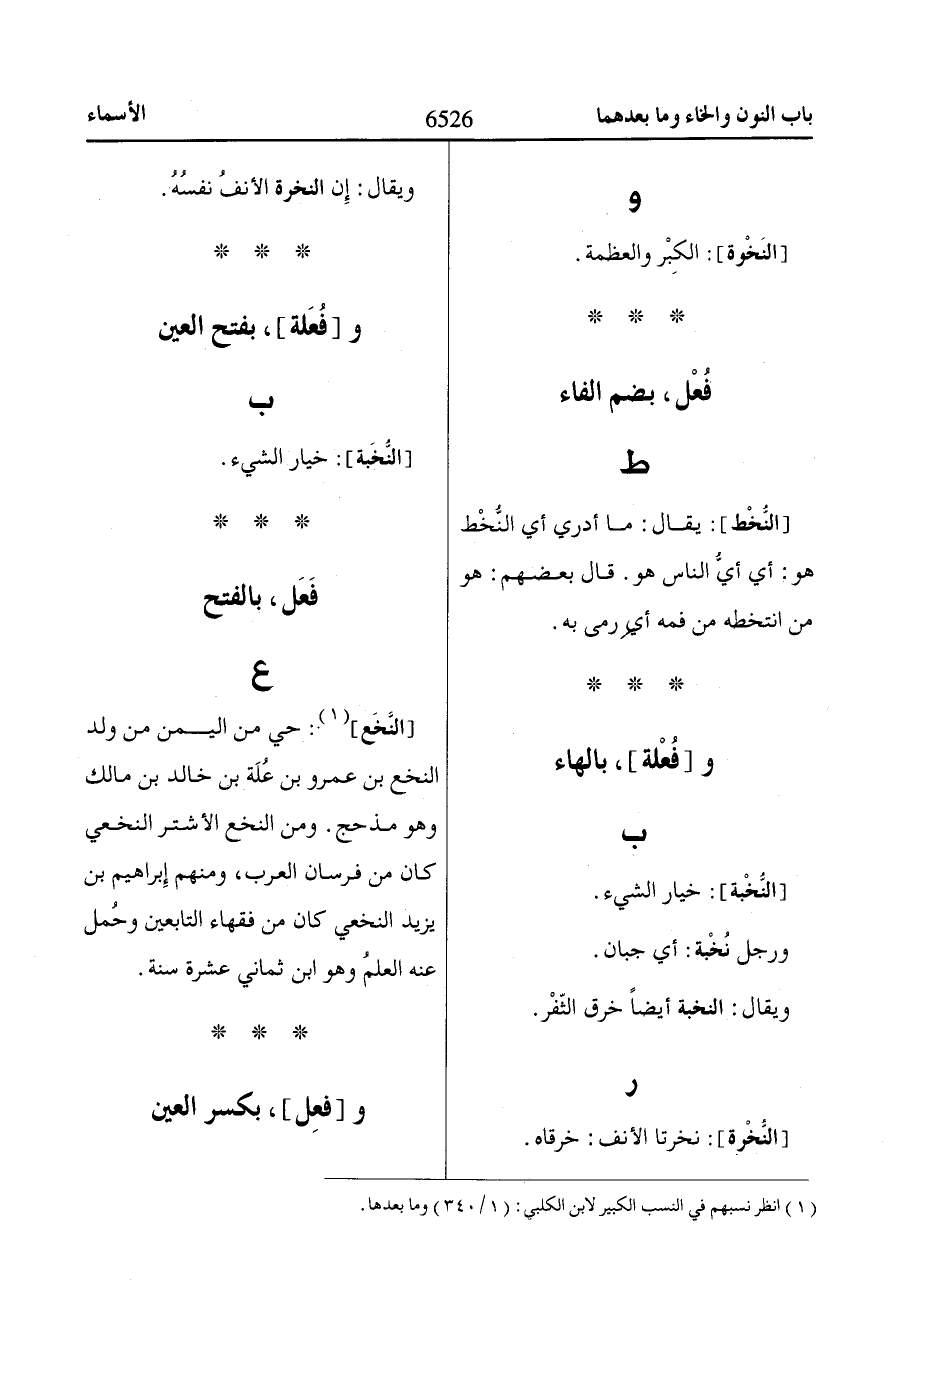 باب النون والخاء وما بعدهما
6526
الأسماء
و
[النَخْوة]: الكِبْر والعظمة.
* * *
فُعْل، بضم الفاء
ط
[النُّخْط]: يقال: ما أدري أي النُّخْط
هو: أي أيُّ الناس هو. قال بعضهم: هو
من انتخطه من فمه أي رمى به.
* * *
و [فُعْلة]، بالهاء
ب
[النُّخْبة]: خيار الشيء.
ورجل نُخْبة: أي جبان.
ويقال: النخبة أيضاً خرق الثّفْر.
ر
[النُّخْرة]: نخرتا الأنف: خرقاه.
ويقال: إِن النخرة الأنفُ نفسُهُ.
* * *
و [فُعَلة]، بفتح العين
ب
[النُّخَبة]: خيار الشيء.
* * *
فَعَل، بالفتح
ع
[النَّخَع](١): حي من اليمن من ولد
النخع بن عمرو بن عُلَة بن خالد بن مالك
وهو مذحج. ومن النخع الأشتر النخعي
كان من فرسان العرب، ومنهم إِبراهيم بن
يزيد النخعي كان من فقهاء التابعين وحُمل
عنه العلمُ وهو ابن ثماني عشرة سنة.
* * *
و [فعِل]، بكسر العين
(١) انظر نسبهم في النسب الكبير لابن الكلبي: (١/٣٤٠) وما بعدها.